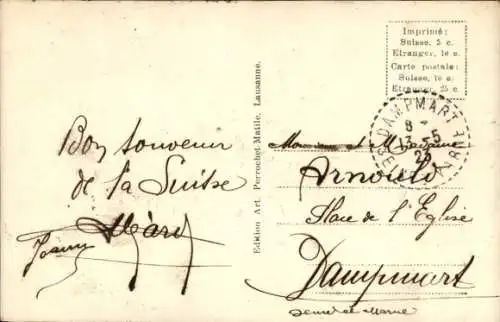 Bon souvenir
de la Suisse
Edition Art. Perrochet-Matile, Lausanne.
Imprimé:
Suisse, 5 c.
Etranger, 10 c.
Carte postale:
Suisse, 10 c.
Etranger, 25 c.
DAMPMART
Monsieur et Madame
Arnould
Place de l'Eglise
Dampmart
Seine et Marne